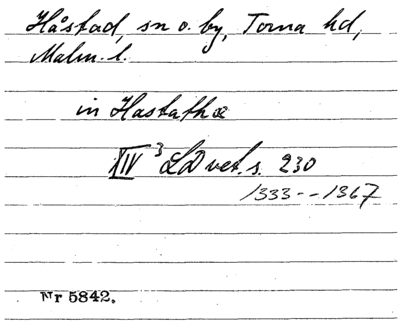 Håstad, sn o. by, Torna hd,
Malm. l.
in Hastathæ
XIV 3 LD vet. s. 230
1333--1367
Nr 5842.